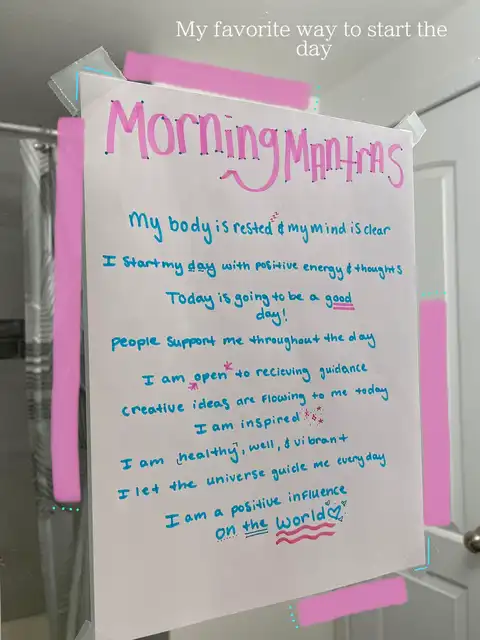 My favorite way to start the
day
Morning Mantras
My body is rested & my mind is clear
I start my day with positive energy & thoughts
Today is going to be a good
day!
people support me throughout the day
I am open to recieving guidance
creative ideas are flowing to me today
I am inspired
I am healthy, well, & vibrant
I let the universe guide me everyday
I am a positive influence
on the world